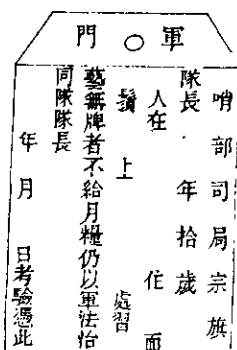 軍○門
哨部司局宗旗
隊長 年拾歲
人在 住 面
鬚 上 處習
藝無牌者不給月糧仍以軍法治
同隊隊長
年 月 日考驗憑此